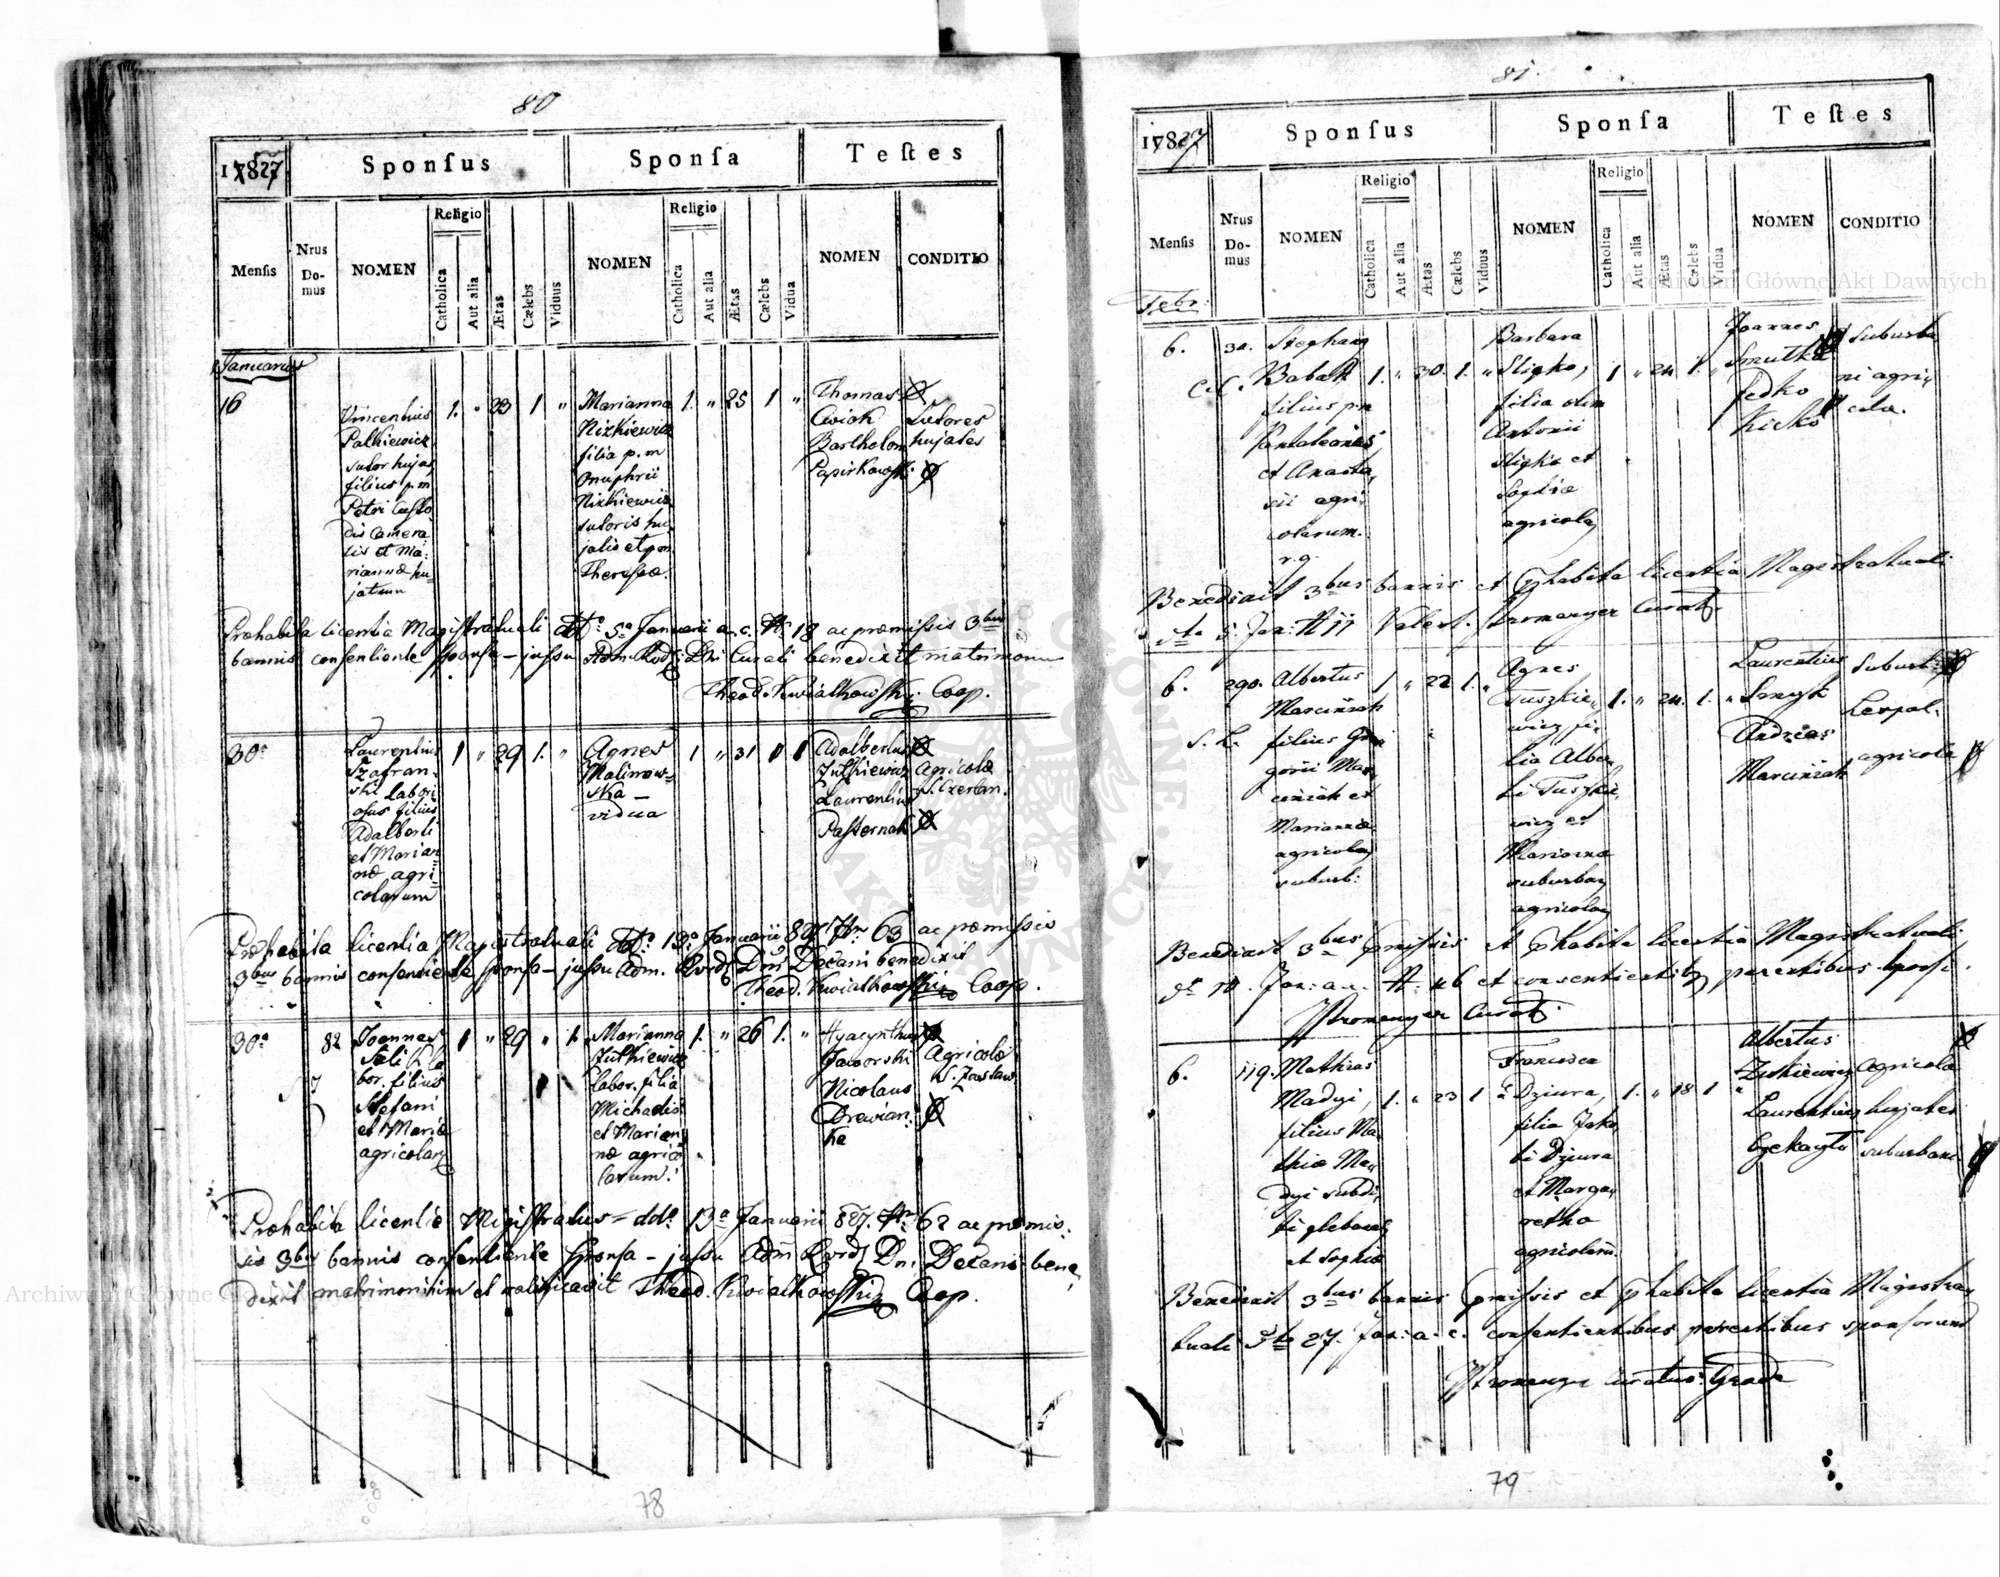 80
17827
Sponſus
Sponſa
Teſtes
Menſis
Nrus Do-mus
NOMEN
Religio
Catholica
Aut alia
Ætas
Cælebs
Viduus
NOMEN
Religio
Catholica
Aut alia
Ætas
Cælebs
Vidua
NOMEN
CONDITIO
Januarius
16
Vincentius
Palkiewicz
sutor hujas
filius p.m
Petri Custo
dis Camera
lis et Ma:
riannæ hu
jatum
1. " 23 1 "
Marianna
Nizkiewicz
filia p.m
Onuphrii
Nizkiewicz
sutoris hu
jatis et p.m
Theresæ.
1. " 25 1 "
Thomas
Cwiok
Bartholom
Papirkowski
Sutores
hujates
Præhabita licentia Magistratuali ddto 5a Januarii a.c. N 18 ac præmissis 3bus
bannis consentiente sponsa – jussu Adm. Rvd. Dni Curati benedixit matrimonium
Theod. Kwiatkowski Coop.
30a
Laurentius
Szafran
ski labori
osus filius
Adalberti
et Marian
næ agri
colarum
1 " 29 1. "
Agnes
Malinow
ska –
vidua
1 " 31 " 1
Adalbertus
Zutkiewicz
Laurentius
Pasternak
Agricolæ
Præhabita licentia Magistratuali ddto 13a Januarii 827 N 63 ac præmissis
3bus bannis consentiente sponsa – jussu Adm. Rvd. Dni Decani benedixit
Theod. Kwiatkowski Coop.
30a
82
Joannes
labor. filius
Stefani
et Mariæ
agricolar
1 " 29 " 1.
Marianna
Zutkiewicz
labor. filia
Michaelis
et Marian
næ agrico
larum.
1. " 26 1. "
Hyacynthus
Jaworski
Nicolaus
Drewian
ka
Agricolæ
Præhabita licentia Magistratus – ddto 13a Januarii 827. N 62 ac præmis:
sis 3bus bannis consentiente sponsa – jussu Adm Rvd Dni Decani bene
dixit matrimonium et ratificavit Theod. Kwiatkowski Coop.
78
81.
17827
Sponſus
Sponſa
Teſtes
Menſis
Nrus Do-mus
NOMEN
Religio
Catholica
Aut alia
Ætas
Cælebs
Viduus
NOMEN
Religio
Catholica
Aut alia
Ætas
Cælebs
Vidua
NOMEN
CONDITIO
Febr:
6.
Stephan
Babak
filius p.m
Pantaleonis
et Anasta
sii agri
colarum.
r.g.
1. " 30. 1. "
Barbara
Sligko,
filia olim
Antonii
Sligko et
Sophiæ
agricolar
1 " 24 1. "
Joannes
Smutko
Fedko
Kicko
suburba
ni agri
colæ.
Benedixit 3bus bannis et præhabita licentia Magistratuali
dto 5. Jan: N 11 Valent. Stromenger Curat.
6.
290.
Albertus
Marciniak
filius Gre
gorii Mar
ciniak et
Mariannæ
agricolar
suburb:
1 " 22 1. "
Agnes
Tuszkie
wicz fi
lia Alber
ti Tuszkie
wicz et
Marianna
suburban
agricolar
1. " 24. 1. "
Laurentius
Andreas
Marciniak
suburb:
agricola
Benedixit 3bus præmissis et præhabita licentia Magistratuali
dto 10. Jan: a.c. N. 46 et consentientib. parentibus spons.
Stromenger Curat.
6.
119.
Mathias
Madyi,
filius Ma
thiæ Ma
dyi subdi
ti glebani
et Sophiæ
1. " 23 1 "
Francisca
Dziura,
filia Jako
bi Dziura
et Marga
retha
agricolarū
1. " 18 1 "
Albertus
Zutkiewicz
Laurentius
agricolæ
hujates
suburbani
Benedixit 3bus bannis præmissis et præhabita licentia Magistra
tuali dto 27. Jan: a.c. consentientibus parentibus sponsorum
Stromenger Curatus Grode
79
Archiwum Główne Akt Dawnych